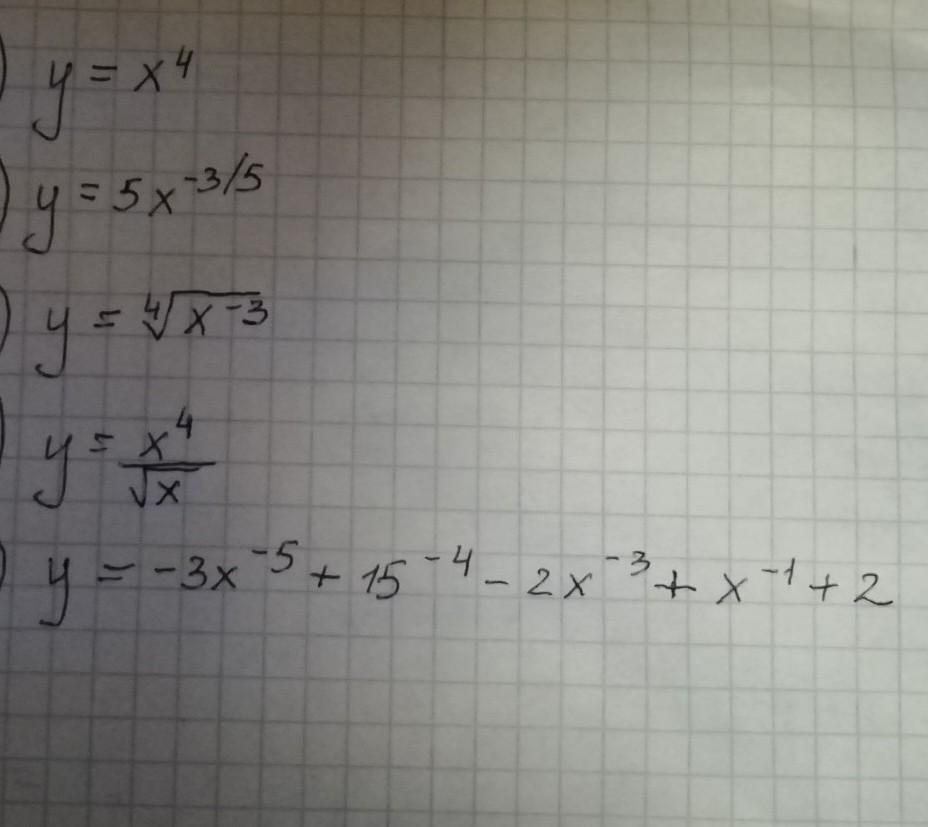 ) y = x⁴
) y = 5x⁻³/⁵
) y = ⁴√(x⁻³)
) y = x⁴/√x
) y = -3x⁻⁵ + 15⁻⁴ - 2x⁻³ + x⁻¹ + 2